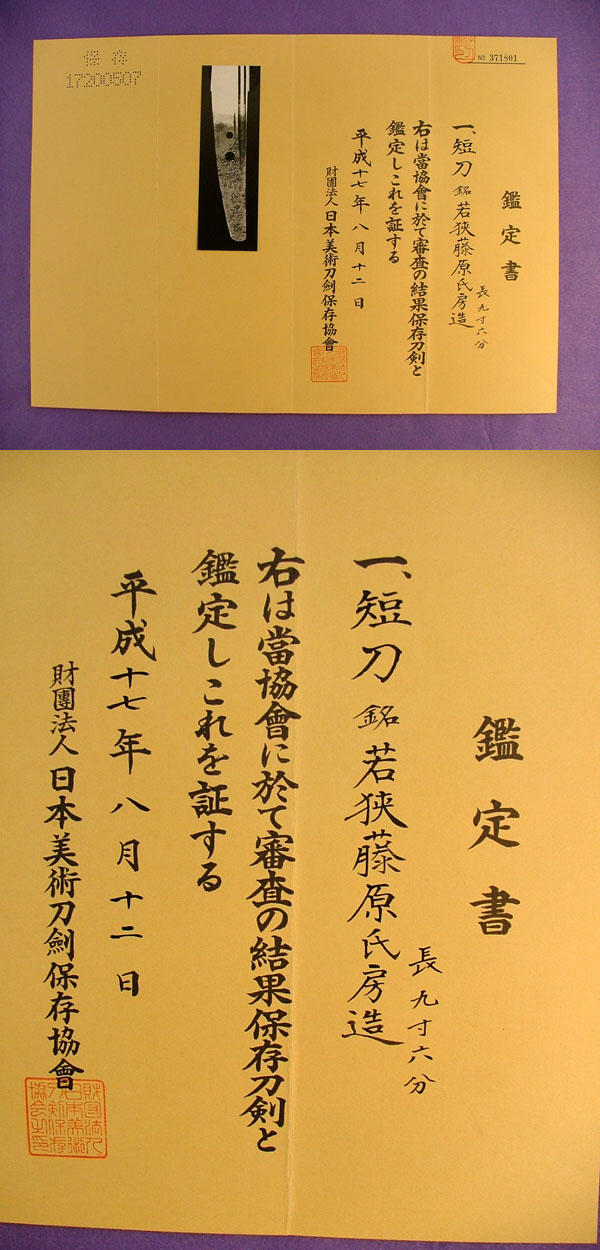 № 371801
鑑定書
一、短刀 銘 若狭藤原氏房造
長九寸六分
右は當協會に於て審査の結果保存刀剣と
鑑定しこれを証する
平成十七年八月十二日
財團法人 日本美術刀劍保存協會
保存
17200507
鑑定書
一、短刀 銘 若狭藤原氏房造
長九寸六分
右は當協會に於て審査の結果保存刀剣と
鑑定しこれを証する
平成十七年八月十二日
財團法人 日本美術刀劍保存協會